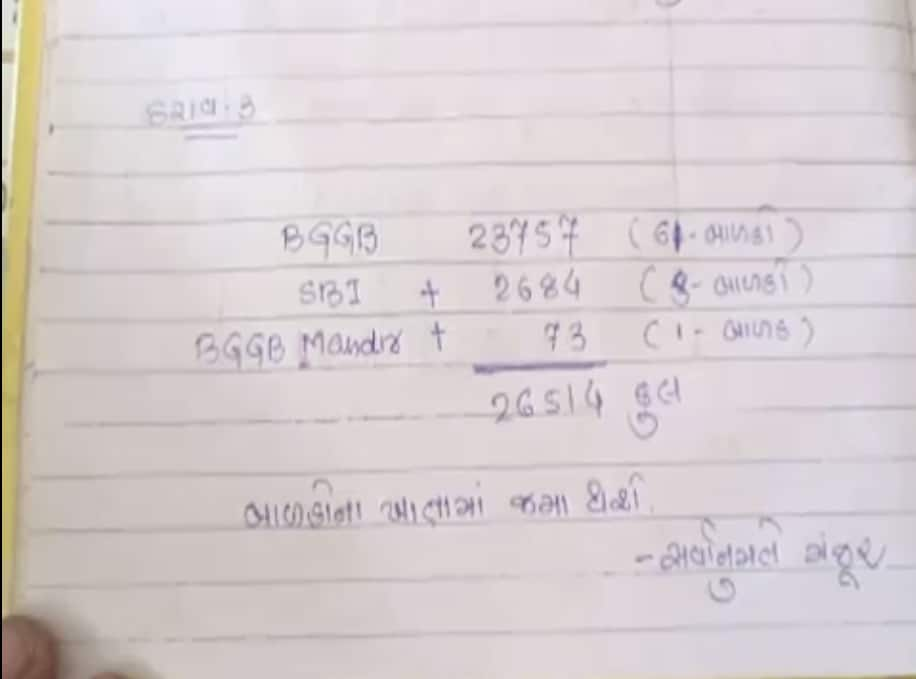 ઠરાવ.૩
BGGB 23757 (61-બાળકો)
SBI + 2684 (8-બાળકો)
BGGB Mandir + 73 (1-બાળક)
26514 કુલ
બાળકોના ખાતામાં જમા થશે.
-સર્વાનુમતે મંજૂર